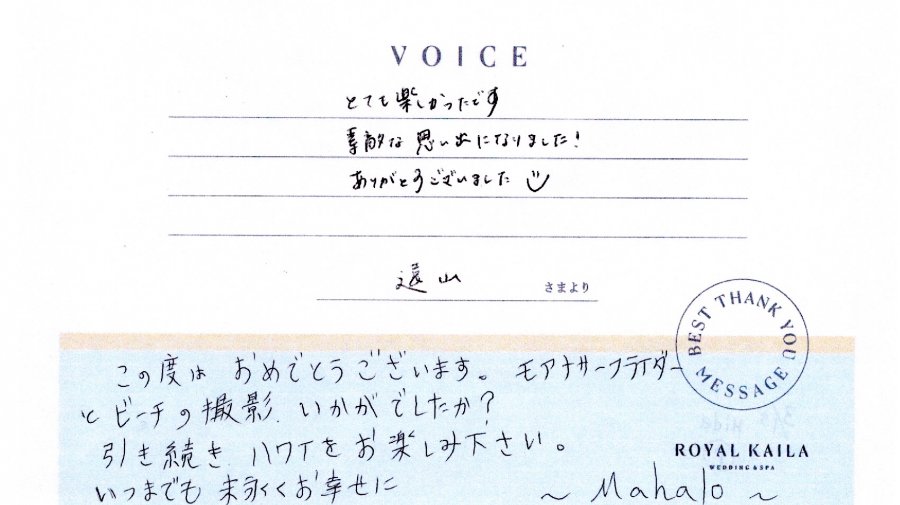 VOICE
とても楽しかったです
素敵な思い出になりました!
ありがとうございました
遠山 さまより
BEST THANK YOU MESSAGE
この度は おめでとうございます。 モアナサーフライダー
と ビーチの撮影、いかがでしたか?
引き続き ハワイを お楽しみ下さい。
ROYAL KAILA
WEDDING & SPA
いつまでも 末永くお幸せに
~ Mahalo ~